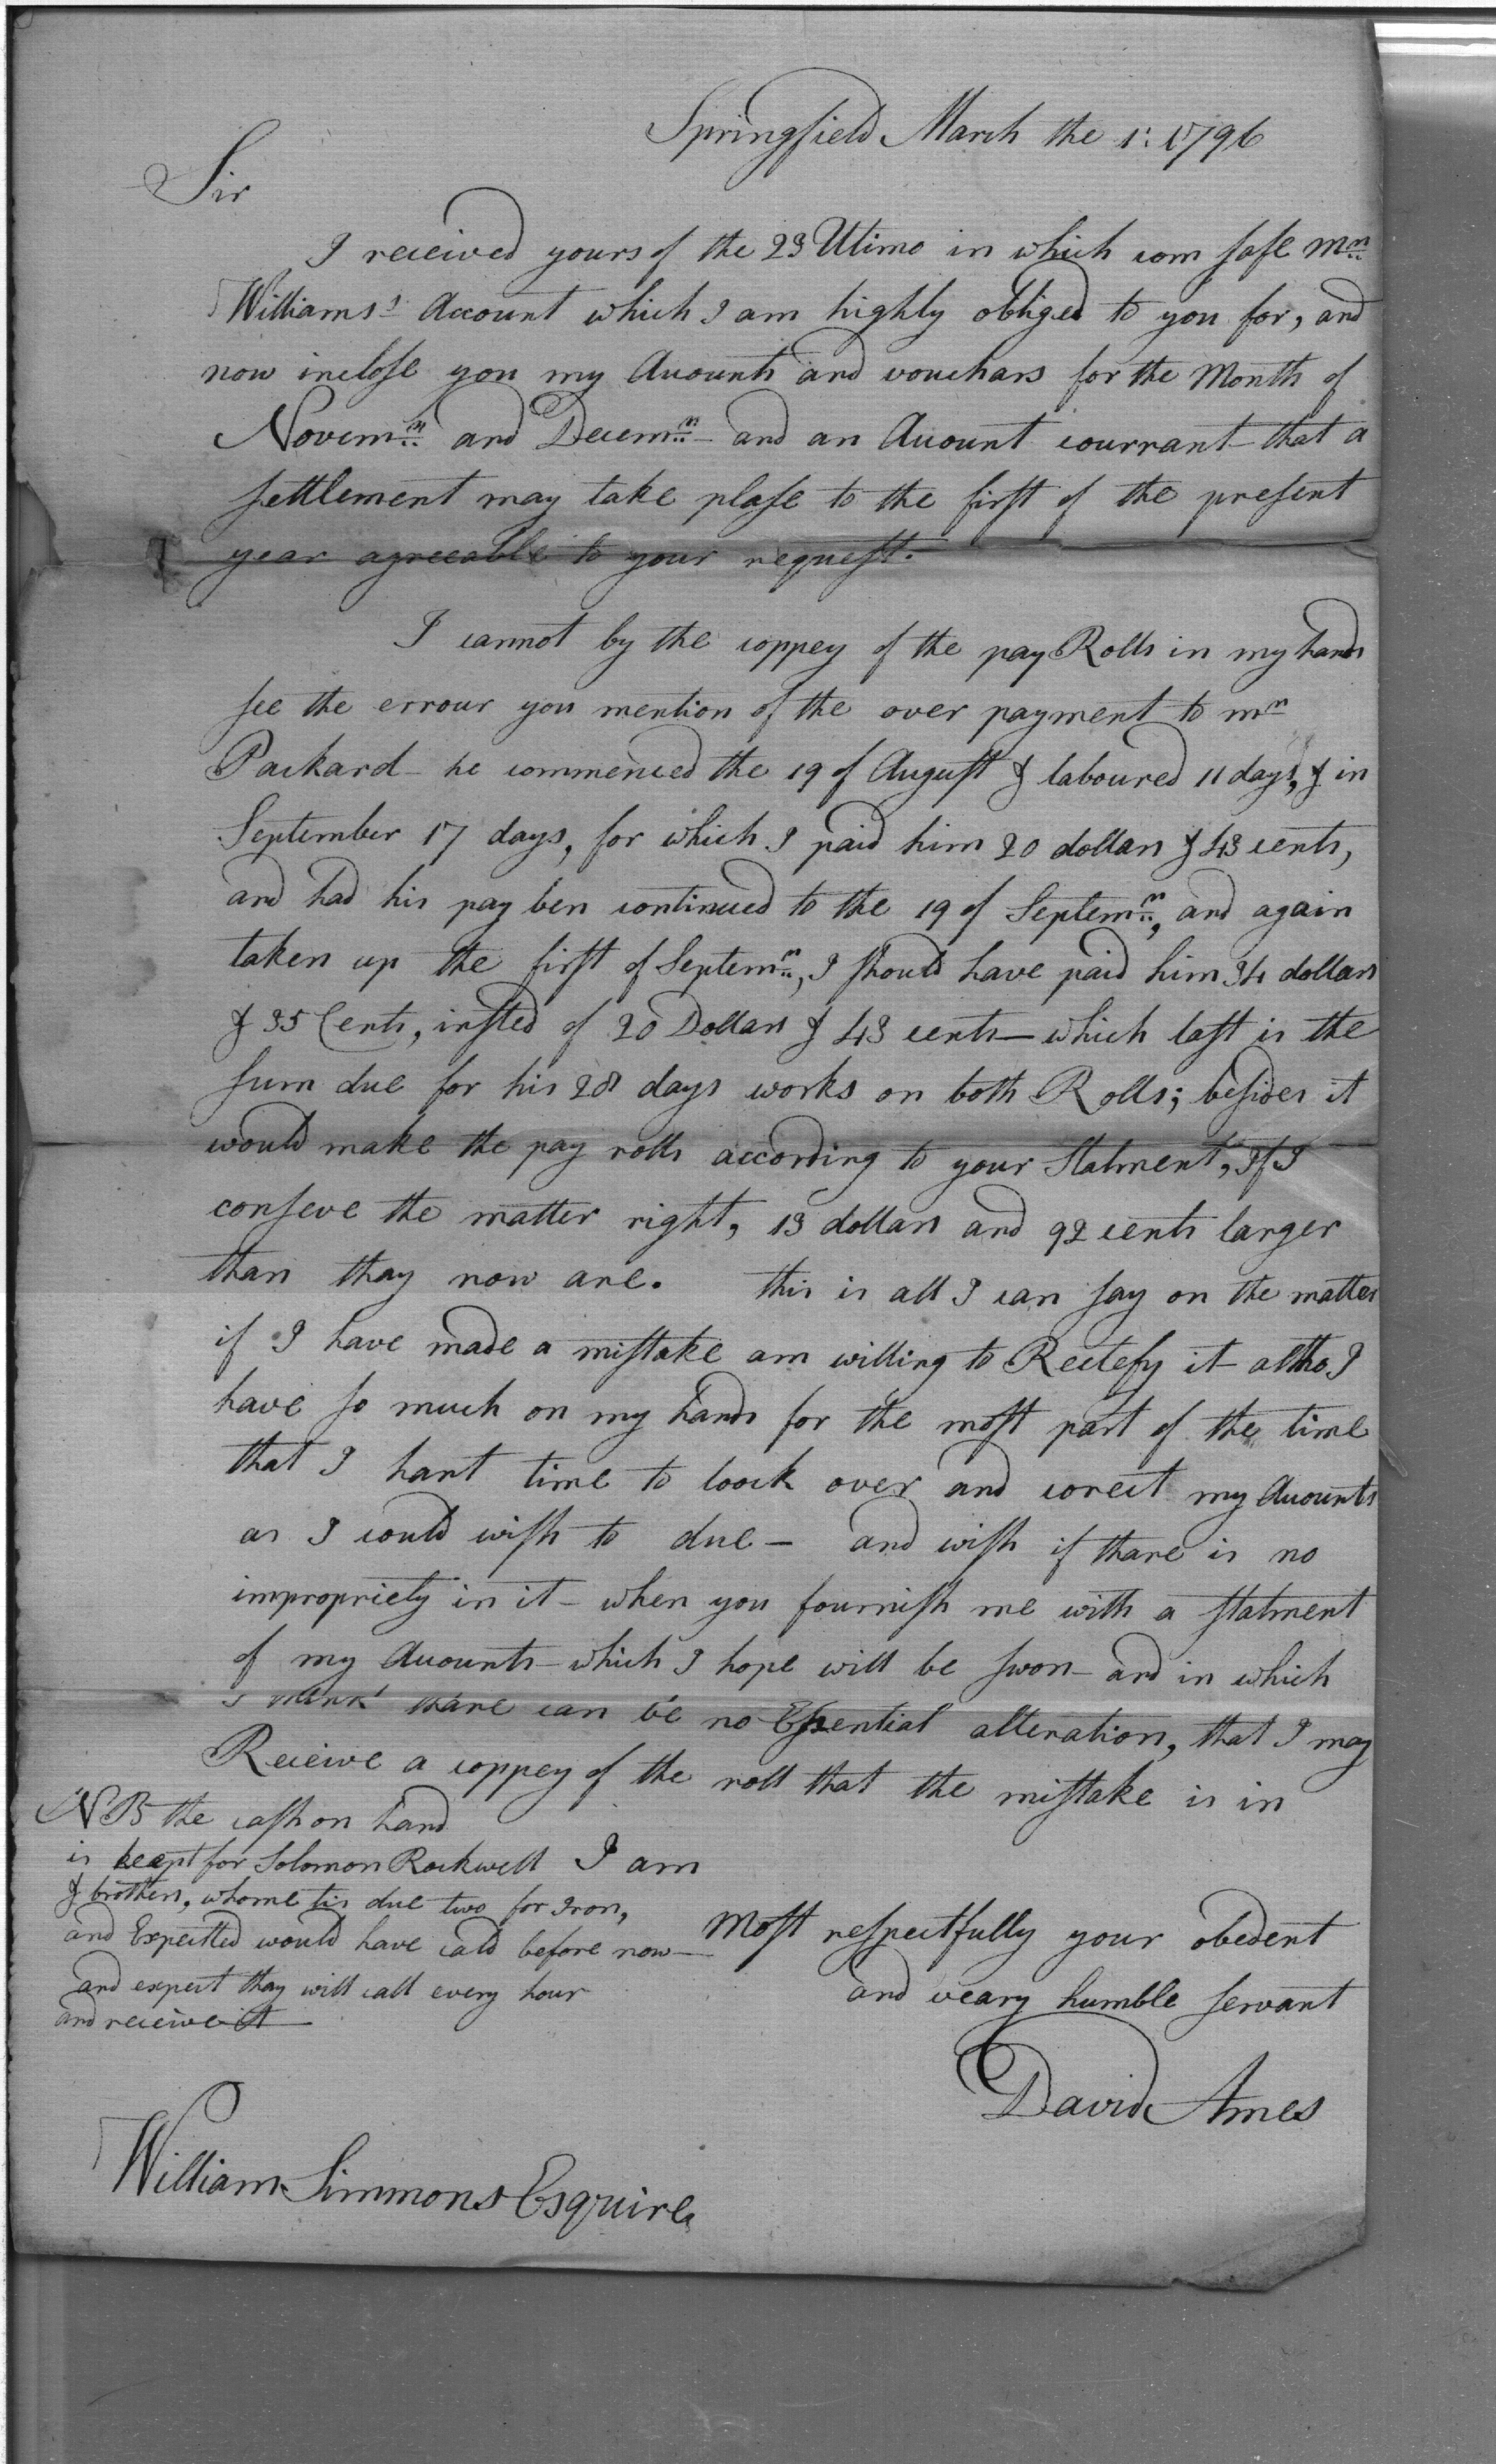 Springfield March the 1: 1796
Sir
I received yours of the 23 Ultimo in which com safe Mr
Williams's Account which I am highly obliged to you for, and
now inclose you my Acounts and vouchars for the Month of
Novemr and Decemr and an Acount courrant that a
settlement may take plase to the first of the present
year agreeable to your request.
I cannot by the coppey of the pay Rolls in my hands
see the errour you mention of the over payment to mr
Packard he commenced the 19 of August & laboured 11 days, & in
September 17 days, for which I paid him 20 dollars & 43 cents,
and had his pay ben continued to the 19 of Septemr, and again
taken up the first of Septemr, I should have paid him 34 dollars
& 35 Cents, insted of 20 Dollars & 43 cents — which last is the
sum due for his 28 days works on both Rolls; besides it
would make the pay rolls according to your Statment, If I
conseve the matter right, 13 dollars and 92 cents larger
than thay now are. this is all I can say on the matter
if I have made a mistake am willing to Rectefy it altho I
have so much on my hands for the most part of the time
that I hant time to loock over and corect my Acounts
as I could wish to due — and wish if thare is no
impropriety in it — when you fournish me with a statment
of my Acounts — which I hope will be swon — and in which
I think thare can be no Essential alteration, that I may
Receive a coppey of the roll that the mistake is in
NB the cash on hand
is keept for Solomon Rockwell
& brothers, whome tis due two for Iron,
and Expectted would have cald before now —
and expect thay will call every hour
and receive it
I am
Most respectfully your obedent
and veary humble servant
David Ames
William Simmons Esquire